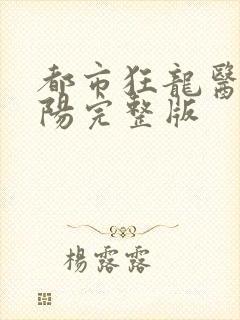 都市狂龍醫
陽完整版
楊露露